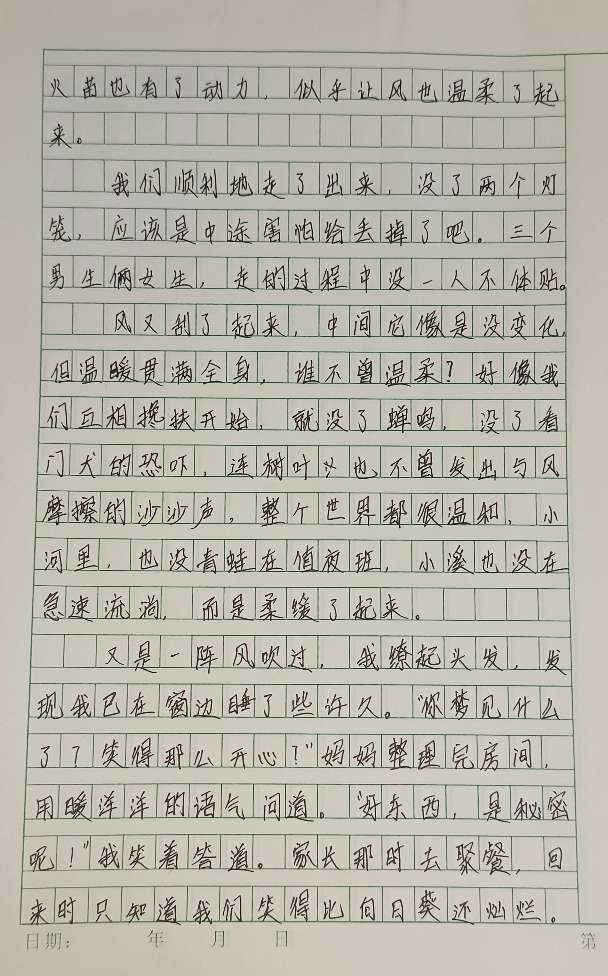 火苗也有了动力，似乎让风也温柔了起
来。
我们顺利地走了出来，没了两个灯
笼，应该是中途害怕给丢掉了吧。三个
男生俩女生，走的过程中没一人不体贴。
风又刮了起来，中间它像是没变化，
但温暖贯满全身，谁不曾温柔？好像我
们互相搀扶开始，就没了蝉鸣，没了看
门犬的恐吓，连树叶也不曾发出与风
摩擦的沙沙声，整个世界都很温和，小
河里，也没青蛙在值夜班，小溪也没在
急速流淌，而是柔缓了起来。
又是一阵风吹过，我撩起头发，发
现我已在窗边睡了些许久。“你梦见什么
了？笑得那么开心？”妈妈整理完房间，
用暖洋洋的语气问道。“好东西，是秘密
呢！”我笑着答道。家长那时去聚餐，回
来时只知道我们笑得比向日葵还灿烂。
日期： 年 月 日 第